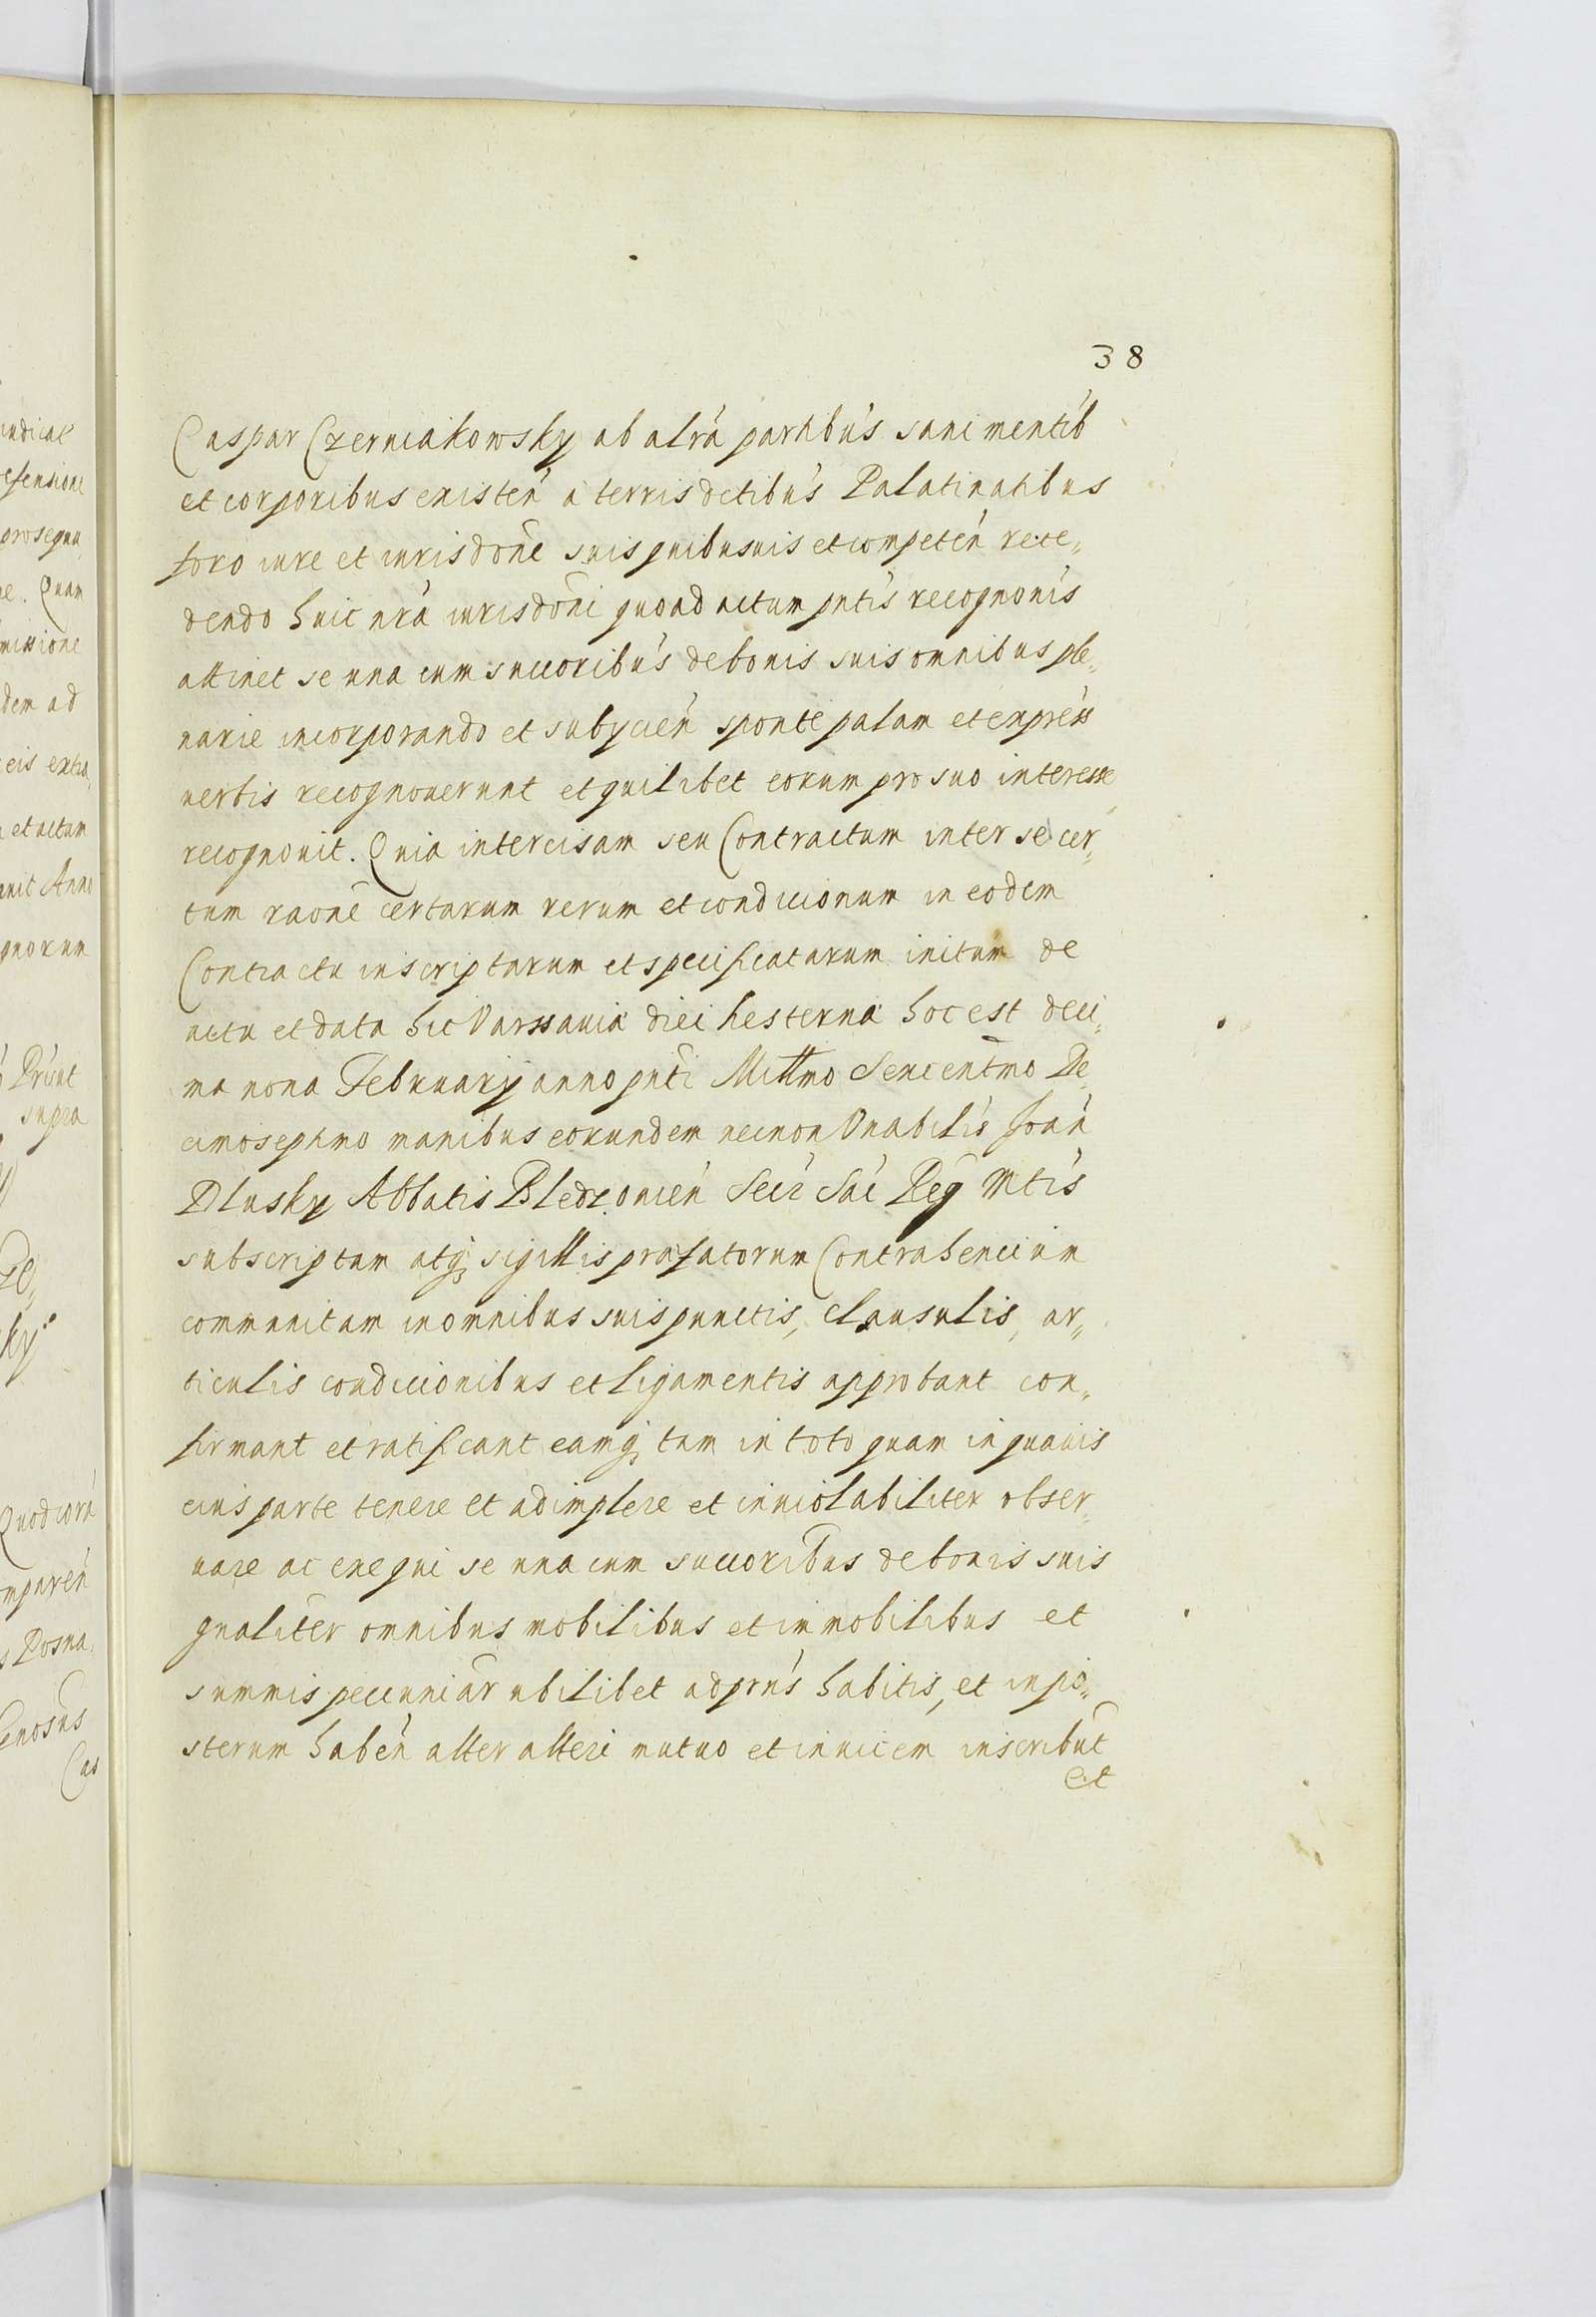 38
Caspar Czerniakowsky ab alrá partibús sani mentib
et corporibus existeń a terris dictibús Palatinatibus
foro iure et iurisdone suis quibusuis et competeń rece„
dendo huic nrá iurisdoni quoad actum pntís recognonis
attinet se una cum succoribús de bonis suis omnibus ple„
narie incorporando et subycień sponte palam et expreśs
verbis recognouerunt et quilibet eorum pro suo interesse
recognouit. Quia intercisam seu Contractum inter se cer„
tum raone certarum rerum et condicionum in eodem
Contractu inscriptarum et specificatarum initum de
actu et data hic Varssauiæ diei hesternæ hoc est deci„
ma nona February anno pnti Millmo Sexcentmo De„
cimoseptmo manibus eorundem necnon Vnabilis Joań
Dlusky Abbatis Bledzouień Secr Sac Reg Mtis
subscriptum atq sigillis præfatorum Contrahencium
communitam in omnibus suis punctis, clausulis, ar„
ticulis condicionibus et ligamentis approbant con„
firmant et ratificant eamq tam in toto quam in quauis
eius parte tenere et adimplere et inuiolabiliter obser„
uare ac exequi se una cum succoribus de bonis suis
gnaliter omnibus mobilibus et immobilibus et
summis pecuniar ubilibet ad prns habitis, et in po„
sterum habeń alter alteri mutuo et inuicem inscribut
et